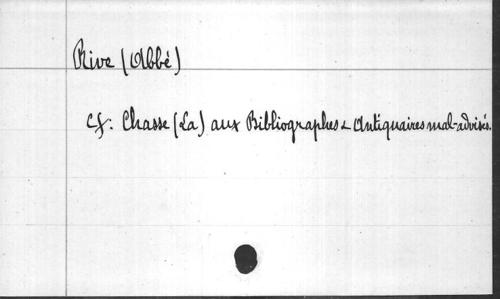 Rive (Abbé)
cf. Chasse (La) aux Bibliographes & Antiquaires mal-advisés.